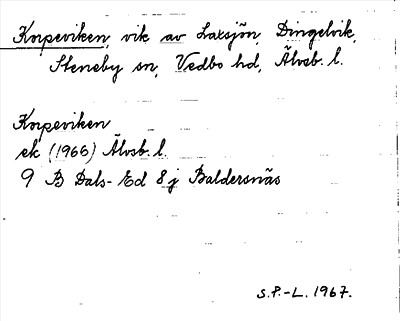 Korpeviken, vik av Laxsjön, Dingelvik,
Steneby sn, Vedbo hd, Älvsb. l.
Korpeviken
ek (1966) Älvsb. l.
9 B Dals-Ed 8 j Baldersnäs
S.P.-L. 1967.